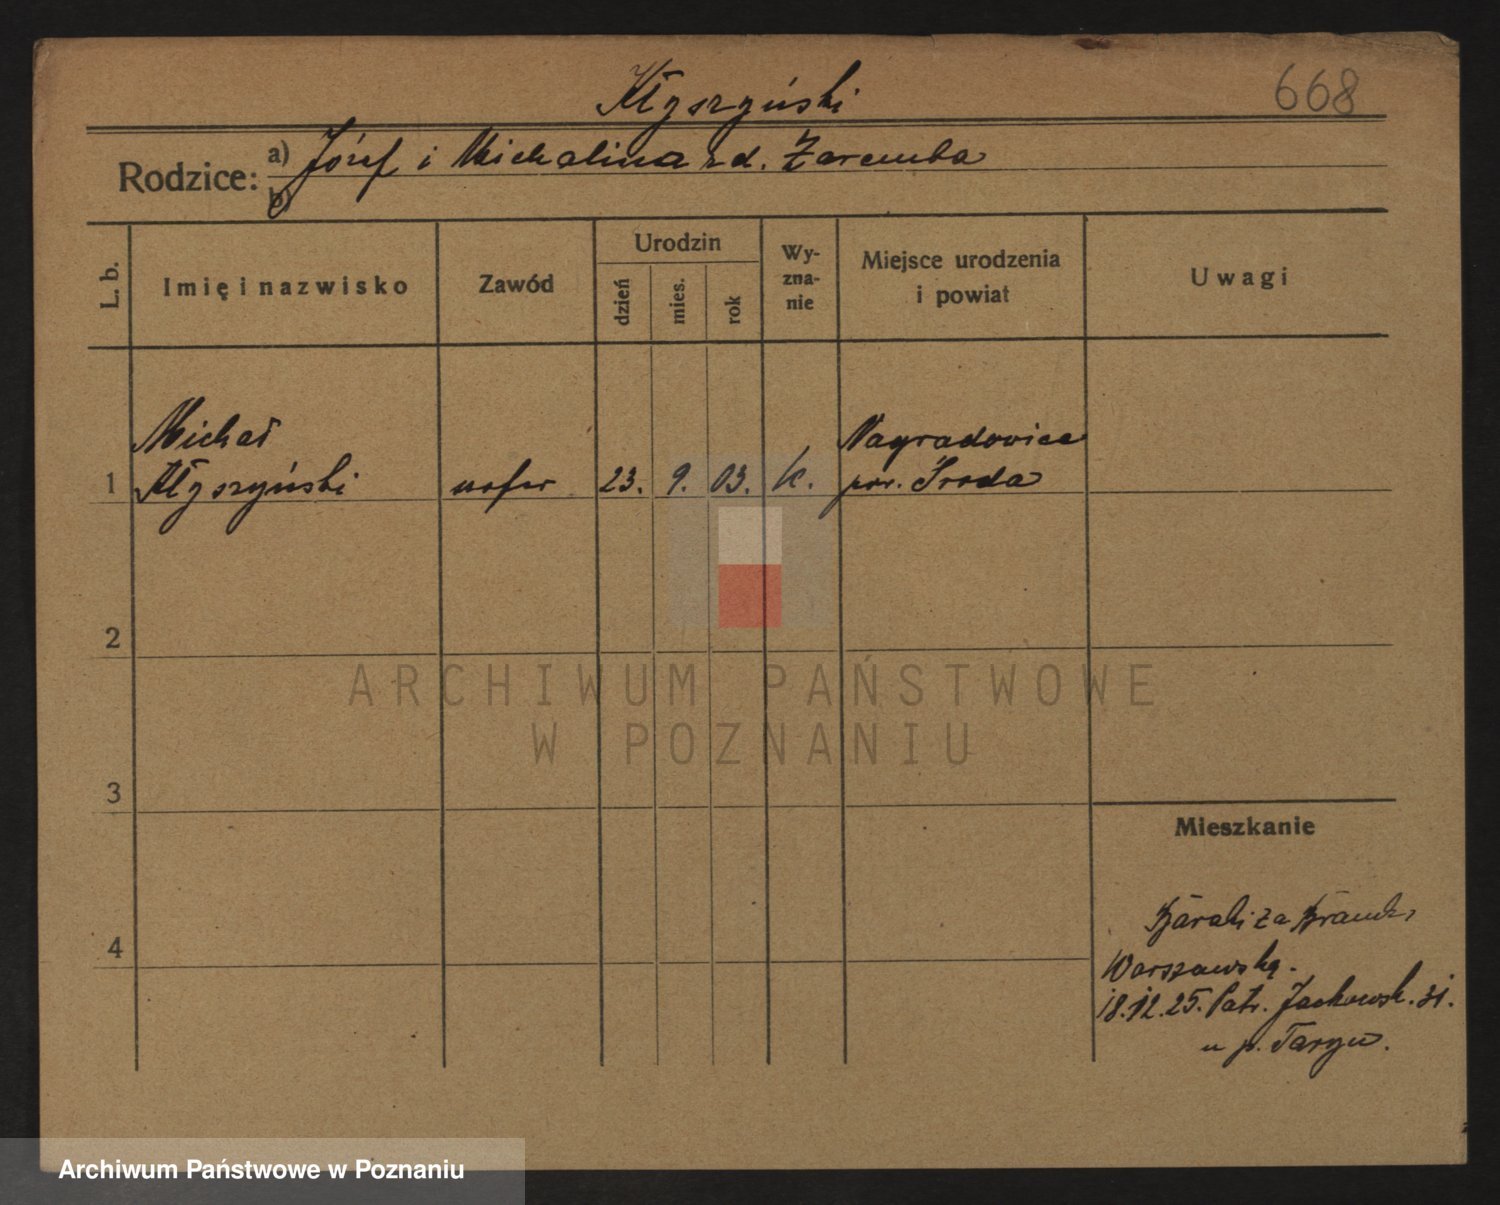 668
Kłyszyński
Rodzice: a) Józef i Michalina zd. Zaremba
b)
L. b. Imię i nazwisko Zawód Urodzin dzień mies. rok Wyznanie Miejsce urodzenia i powiat Uwagi
Michał Nagradowice
1 Kłyszyński szofer 23. 9. 03. K. pow. Środa
2
ARCHIWUM PAŃSTWOWE
W POZNANIU
3
Mieszkanie
4
Baraki za Bramką
Warszawską.
18.12.25. Patr. Jackowsk. 31.
u p. Targu.
Archiwum Państwowe w Poznaniu